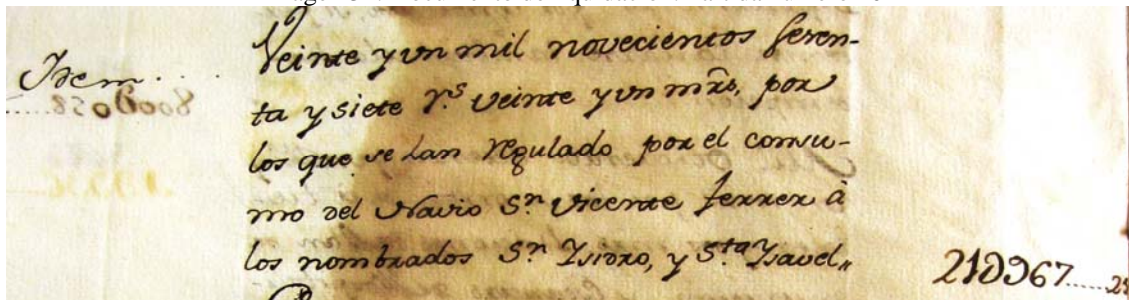 Idem....
Veinte y un mil novecientos sesen-
ta y siete r.s veinte y un mrs, por
los que se han regulado por el consu-
mo del Navio S.n Vicente Ferrer à
los nombrados S.n Ysidro, y S.ta Ysavel,,
21Đ967......21